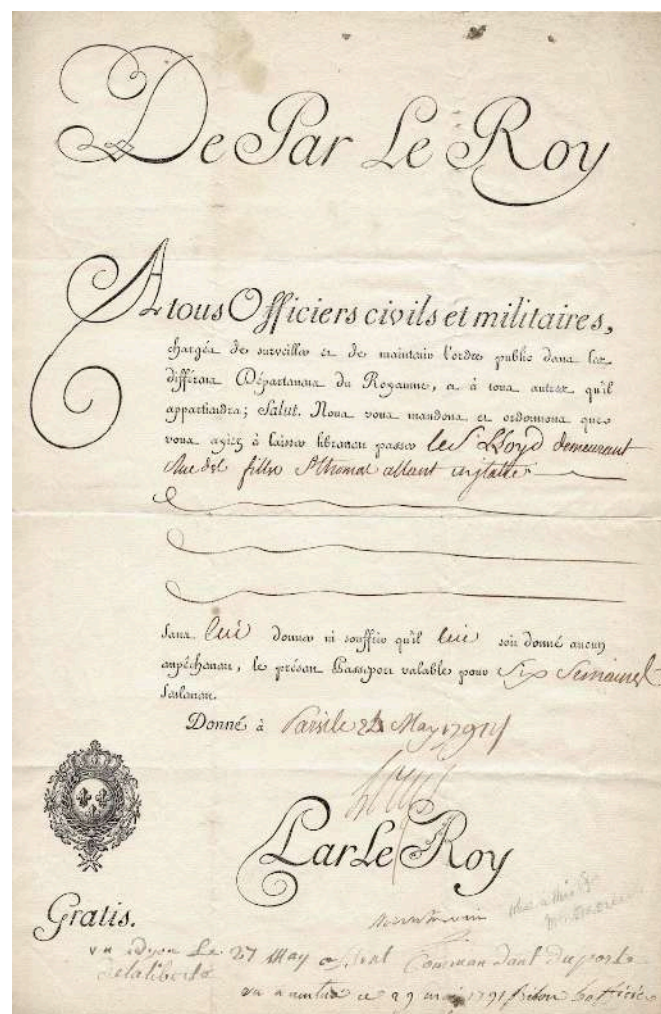 De Par Le Roy
A tous Officiers civils et militaires,
chargés de surveiller et de maintenir l'ordre public dans les
différens Départemens du Royaume, et à tous autres qu'il
appartiendra; Salut. Nous vous mandons et ordonnons que
vous ayiez à laisser librement passer le S. Lloyd demeurant
Rue des filles St thomas allant
Sans lui donner ni souffrir qu'il lui soit donné aucun
empêchement, le présent Passeport valable pour Six Semaines
Seulement.
Donné à Paris le May 1791
Louis
Par Le Roy
Gratis.
vu Le 27 May Commandant du poste
de la liberté
vu a ce 29 mai 1791